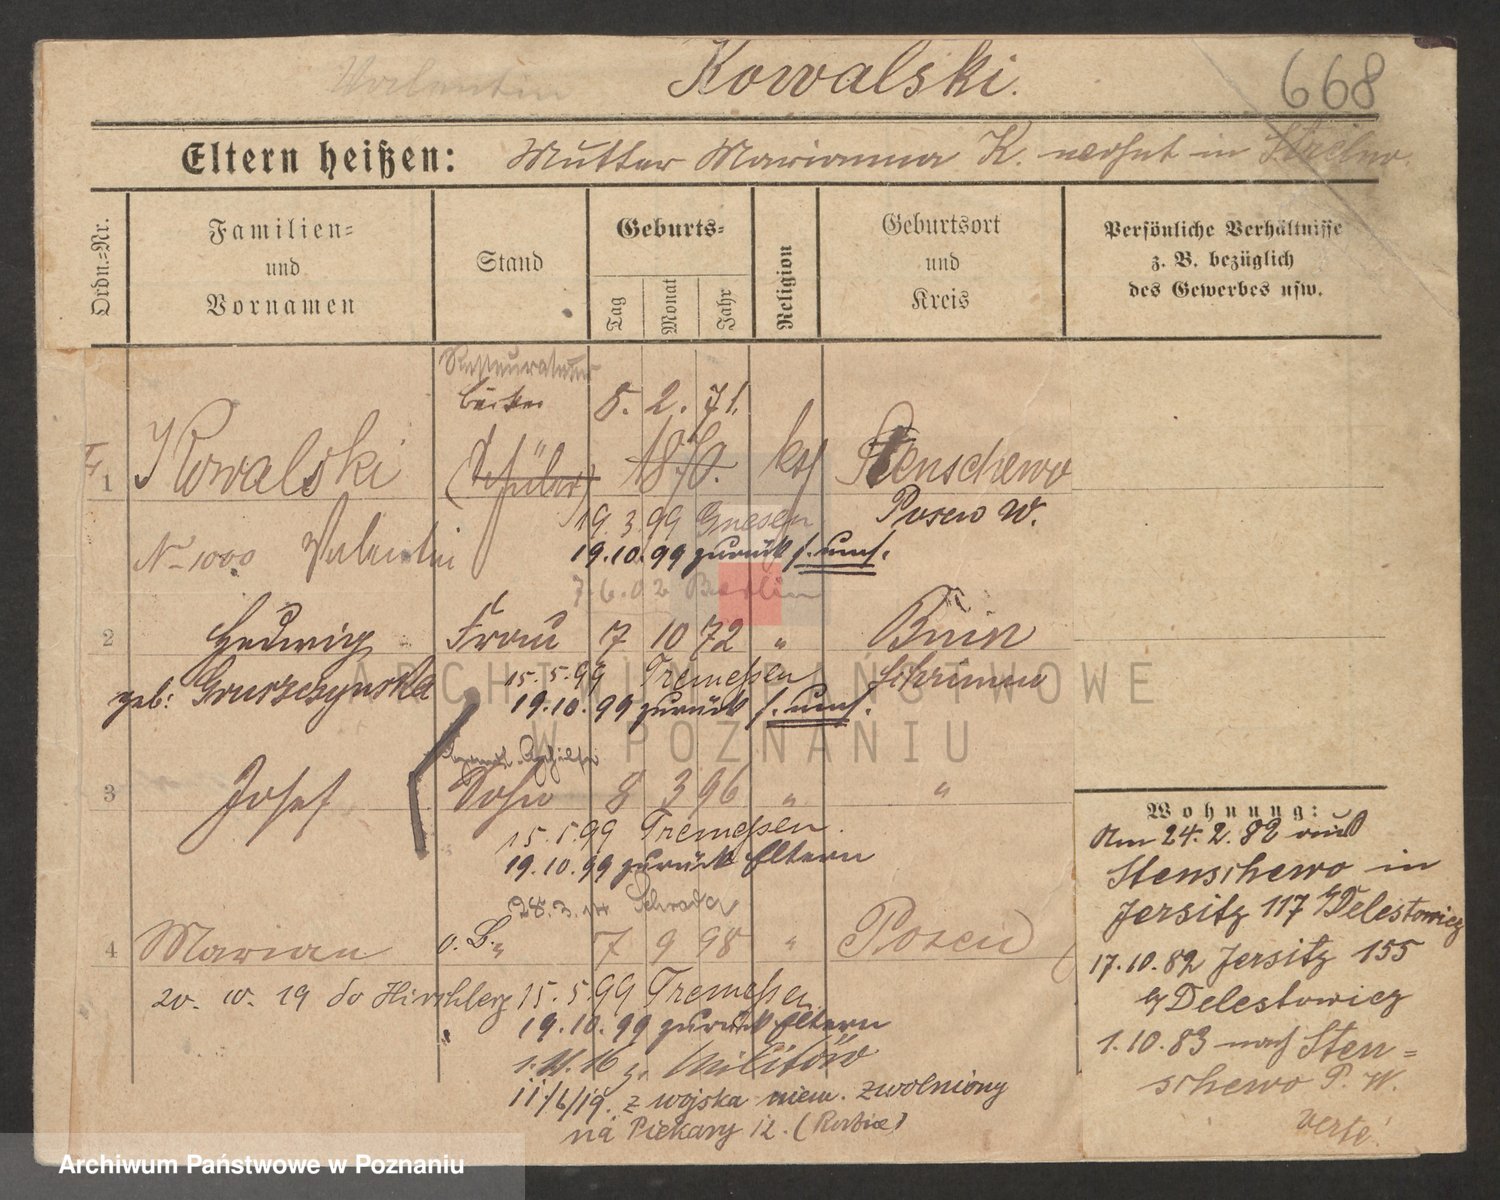 Valentin Kowalski. 668
Eltern heißen: Mutter Marianna K. wohnt in Strelno.
Ordn.-Nr.
Familien- und Vornamen
Stand
Geburts-
Tag Monat Jahr
Religion
Geburtsort und Kreis
Persönliche Verhältnisse
z. B. bezüglich
des Gewerbes usw.
Restaurateur
Bäcker 8. 2. 71.
1 Kowalski (Schüler) 1870. kth Stenschewo
19.3.99 Gnesen Posen W.
No 1000 Valentin 19.10.99 zurück s. umst.
7.6.02 Berlin
2 Hedwig Frau 7 10 72 " Bnin
geb: Gruszczynska 15.5.99 Tremessen Schrimm
19.10.99 zurück s. umst.
3 Josef Sohn 8 3 96 " "
15.5.99 Tremessen.
19.10.99 zurück Eltern
28.3.14 Schroda
4 Marian o. B. " 7 9 98 " Posen
20. 10. 19 do Hirschberg 15.5.99 Tremessen
19.10.99 zurück Eltern
1.11.16 z. Militär
11/6/19. z wojska niem. zwolniony
na Piekary 12. (Rodzice)
Wohnung:
Am 24.2.82 aus
Stenschewo in
Jersitz 117 b/Delestowicz
17.10.82 Jersitz 155
b/Delestowicz
1.10.83 nach Sten=
schewo P. W.
verte!
ARCHIWUM PAŃSTWOWE
W POZNANIU
Archiwum Państwowe w Poznaniu